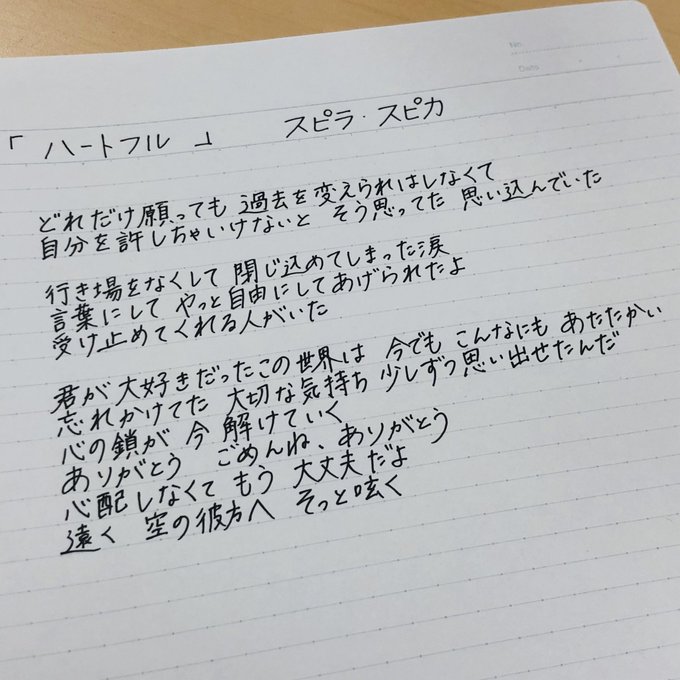 No.
Date
「 ハートフル 」 スピラ・スピカ
どれだけ願っても 過去を変えられはしなくて
自分を許しちゃいけないと そう思ってた 思い込んでいた
行き場をなくして 閉じ込めてしまった涙
言葉にして やっと自由にしてあげられたよ
受け止めてくれる人がいた
君が大好きだったこの世界は 今でも こんなにも あたたかい
忘れかけてた 大切な気持ち 少しずつ思い出せたんだ
心の鎖が 今 解けていく
ありがとう ごめんね、ありがとう
心配しなくて もう 大丈夫だよ
遠く 空の彼方へ そっと呟く